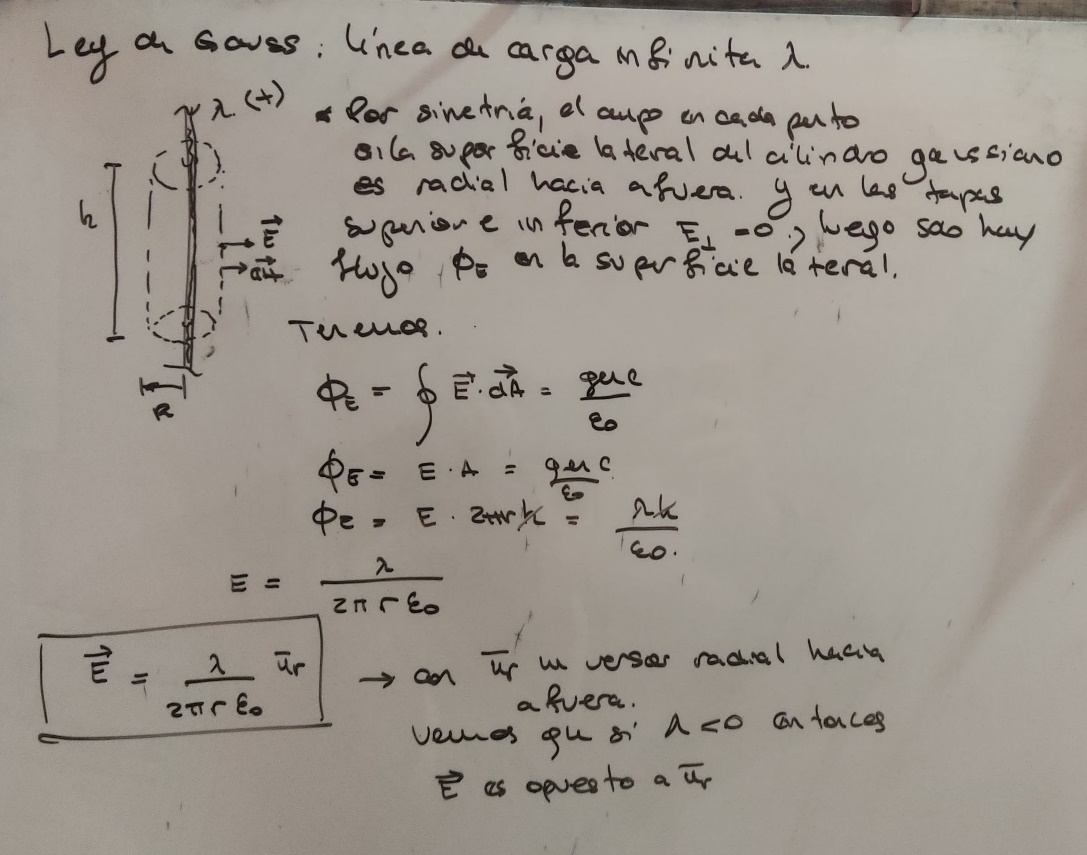 Ley de Gauss: línea de carga infinita λ.
λ (+)
• Por simetría, el campo en cada punto
de la superficie lateral del cilindro gaussiano
es radial hacia afuera. y en las tapas
superior e inferior E⊥ = 0, luego solo hay
flujo ϕE en la superficie lateral.
h
E⃗
dA⃗
R
Tenemos.
ϕE = ∮ E⃗ · dA⃗ = qenc / ε0
ϕE = E · A = qenc / ε0
ϕE = E · 2πrh = λh / ε0.
E = λ / 2πrε0
E⃗ = λ / 2πrε0 ūr → con ūr un versor radial hacia
afuera.
vemos que si λ < 0 entonces
E⃗ es opuesto a ūr